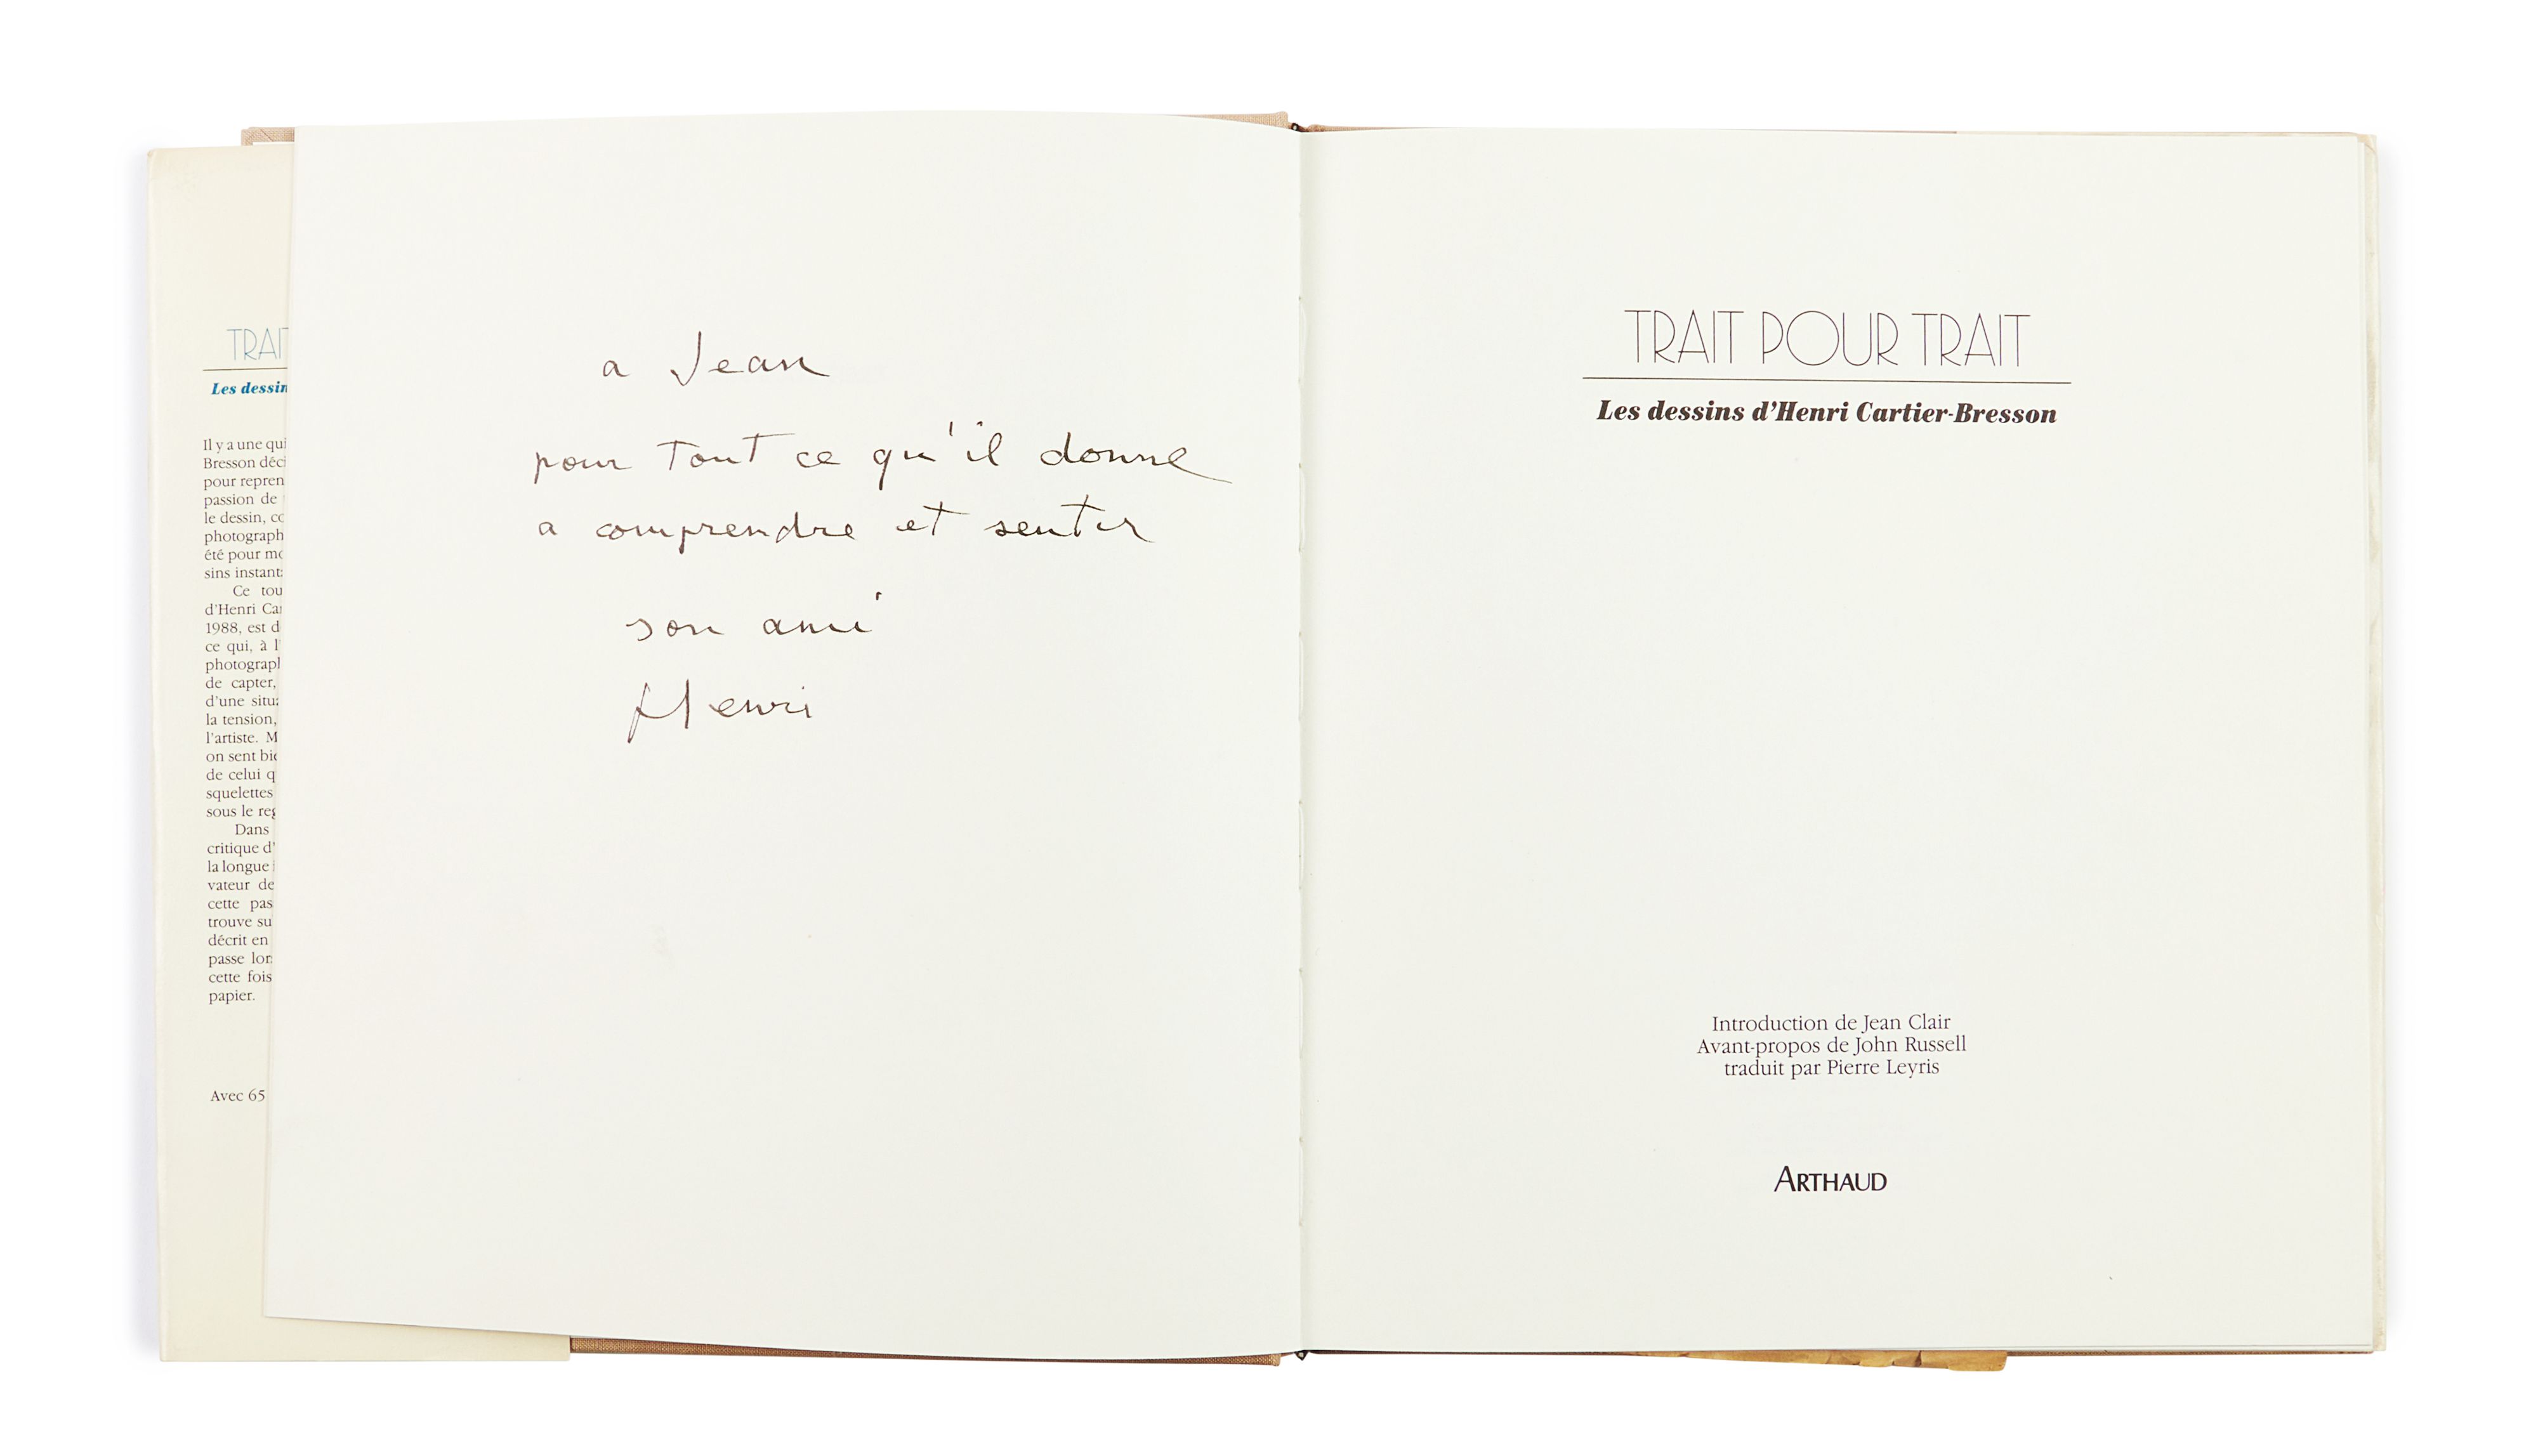 TRAI
Les dessin
Il y a une qui
Bresson déci
pour repren
passion de
le dessin, co
photograph
été pour mo
sins instant
Ce tou
d'Henri Car
1988, est d
ce qui, à l'
photograpl
de capter,
d'une situa
la tension,
l'artiste. M
on sent bie
de celui q
squelettes
sous le reg
Dans
critique d'
la longue
vateur de
cette pas
trouve su
décrit en
passe lor
cette fois
papier.
Avec 65
a Jean
pour tout ce qu'il donne
a comprendre et sentir
son ami
Henri
TRAIT POUR TRAIT
Les dessins d'Henri Cartier-Bresson
Introduction de Jean Clair
Avant-propos de John Russell
traduit par Pierre Leyris
ARTHAUD